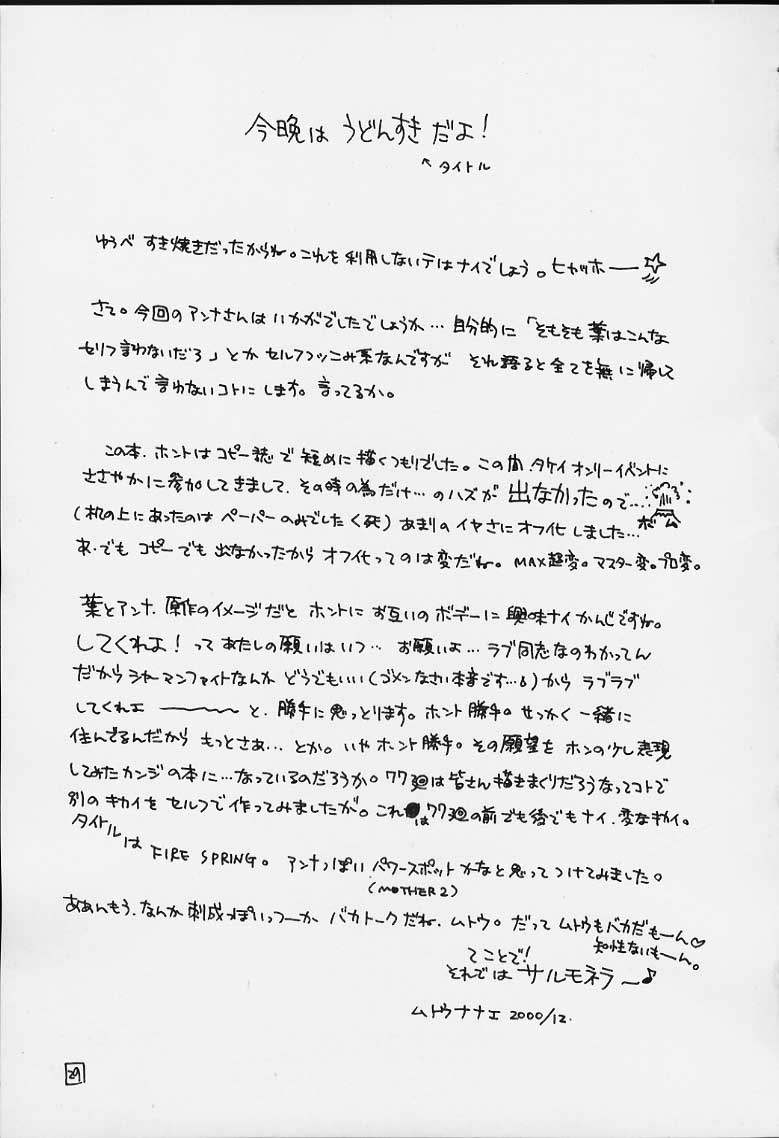 今晩は うどんすき だよ!
↖タイトル
ゆうべ すき焼きだったからね。これを利用しないテはナイでしょう。ヒャッホー——☆
さて。今回のアンナさんはいかがでしたでしょうか… 自分的に「そもそも葉はこんな
セリフ言わないだろ」とか セルフツッこみ系なんですが それ語ると全てを無に帰して
しまうんで言わないコトにします。言ってるか。
この本、ホントはコピー誌で短めに描くつもりでした。この間、タケイオンリーイベントに
ささやかに参加してきまして、その時の為だけ…のハズが 出なかったので…
ボム
(机の上にあったのは ペーパーのみでした<死) あまりのイヤさにオフ化しました…
あ、でも コピーでも 出なかったから オフ化ってのは変だね。MAX超変。マスター変。プロ変。
葉とアンナ、原作のイメージだと ホントに お互いのボデーに興味ナイかんじですね。
してくれよ! って あたしの願いはいつ… お願いよ… ラブ同志なのわかってん
だからシャーマンファイトなんか どうでもいい(ゴメンなさい本音です…)から ラブラブ
してくれよ 〜〜〜 と、勝手に思っとります。ホント勝手。せっかく一緒に
住んでるんだから もっとさぁ… とか。いや ホント勝手。その願望を ホンの少し表現
してみたカンジの本に…なっているのだろうか。77廻は皆さん描きまくりだろうなってコトで
別のキカイをセルフで作ってみましたが。これは77廻の前でも後でもナイ、変なキカイ。
タイトルは FIRE SPRING。 アンナっぽい パワースポットかなと思ってつけてみました。
(MOTHER2)
ああんもう、なんか刺成っぽいっつーか バカトークだね、ムトウ。だって ムトウもバカだもーん♡
知性ないもーん。
てことで!
それでは サルモネラ〜♪
ムトウナナエ 2000/12.
29